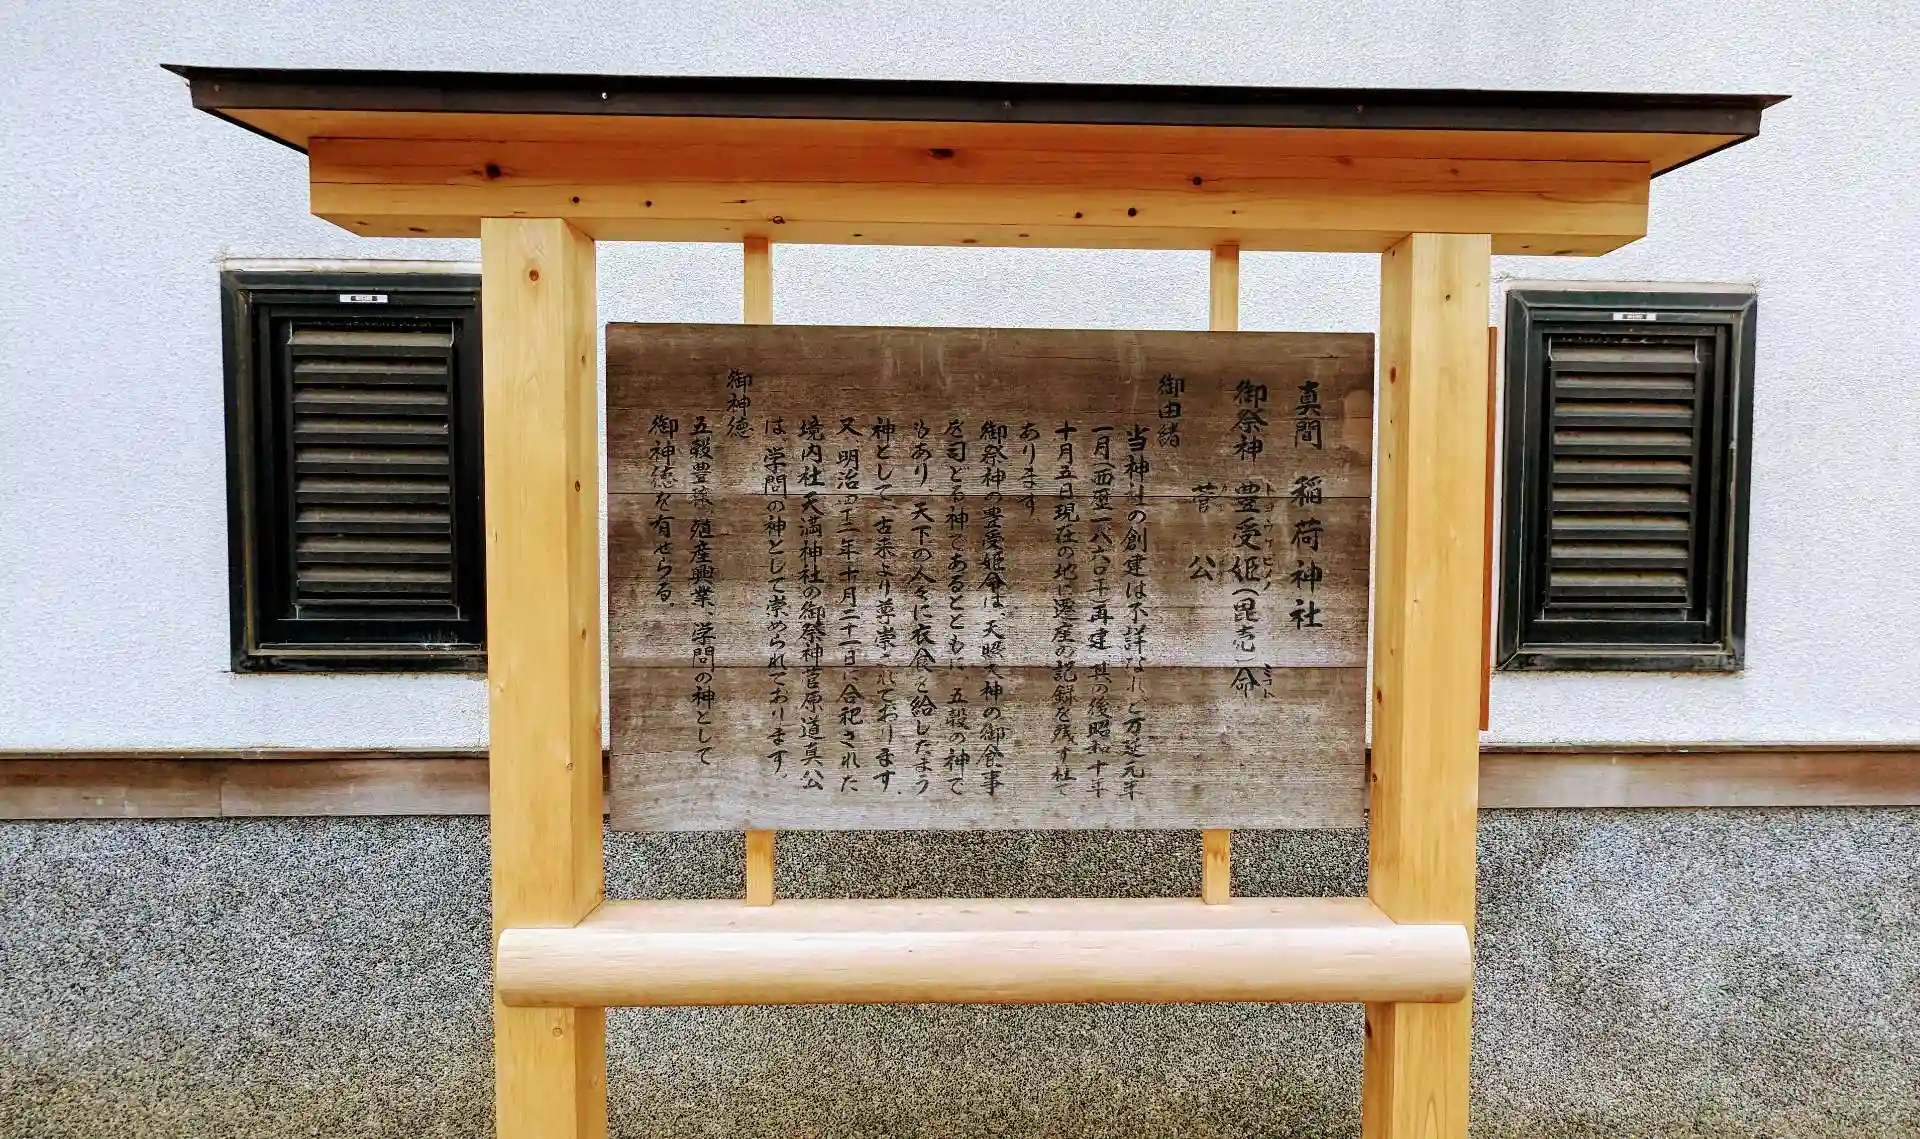 真間 稲荷神社
御祭神 豊受姫(毘売)命
トヨウケビメノ
ミコト
菅公
御由緒
当神社の創建は不詳なれど万延元年
一月(西歴一八六〇年)再建、其の後昭和十年
十月五日現在の地に遷座の記録を残す社で
あります。
御祭神の豊受姫命は、天照大神の御食事
を司どる神であるとともに、五穀の神で
もあり、天下の人々に衣食を給したまう
神として、古来より尊崇されております。
又、明治四十二年十月二十一日に合祀された
境内社天満神社の御祭神菅原道真公
は、学問の神として崇められております。
御神徳
五穀豊穣、殖産興業、学問の神として
御神徳を有せらる。